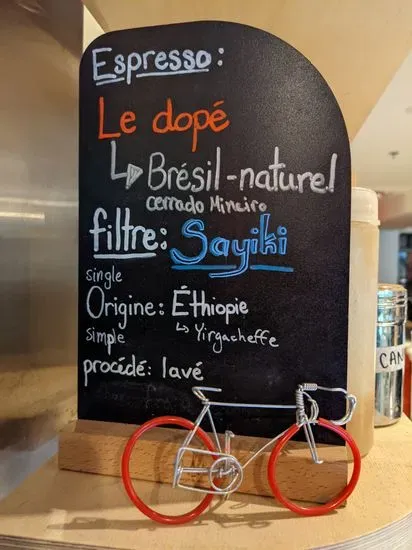 Espresso:
Le dopé
Brésil-naturel
cerrado Mineiro
filtre: Sayiki
single
Origine: Éthiopie
simple
Yirgacheffe
procédé: lavé
CAN